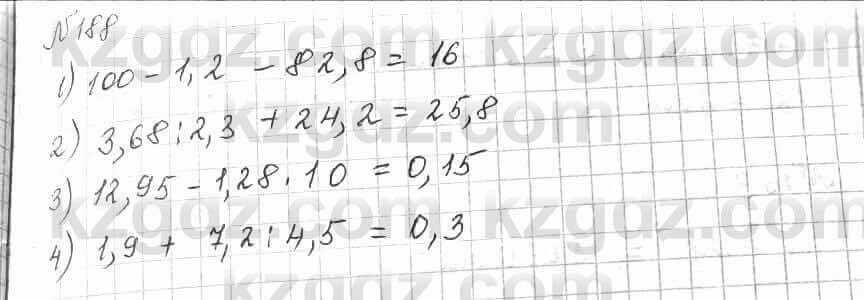 №188
1) 100 - 1,2 - 82,8 = 16
2) 3,68 : 2,3 + 24,2 = 25,8
3) 12,95 - 1,28 . 10 = 0,15
4) 1,9 + 7,2 : 4,5 = 0,3
kzgdz.com